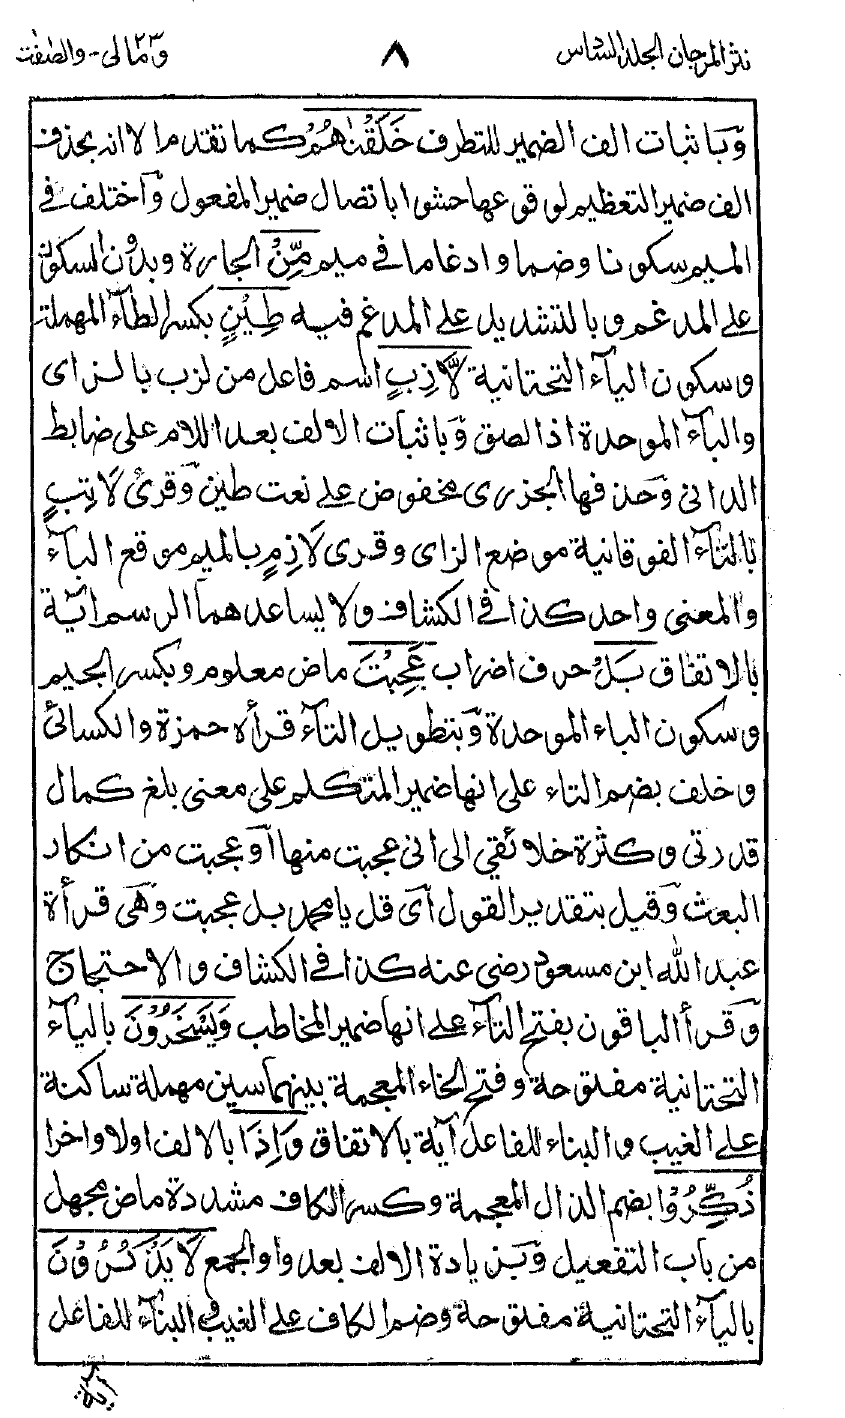 نثر المرجان الجلد السادس ٨ ومالى ٢٣ - والصفت
وباثبات الف الضمير للتطرف خَلَقْنٰهُمْ كما تقدم الا انه بحذف
الف ضمير التعظيم لوقوعها حشوا باتصال ضمير المفعول واختلف في
الميم سكونا وضما وادغاما في ميم مِّنْ الجارة وبدون السكون
على المدغم وبالتشديد على المدغم فيه طِيْنٍ بكسر الطآء المهملة
وسكون اليآء التحتانية لَّازِبٍ اسم فاعل من لزب بالزاى
والبآء الموحدة اذا لصق وباثبات الالف بعد اللام على ضابط
الدانى وحذفها الجزرى مخفوض على نعت طين وقرئ لَاتِبٍ
بالتآء الفوقانية موضع الزاى وقرى لَازِمٍ بالميم موقع البآء
والمعنى واحد كذا في الكشاف ولا يساعدهما الرسم آية
بالاتفاق بَلْ حرف اضراب عَجِبْتَ ماض معلوم وبكسر الجيم
وسكون الباء الموحدة وبتطويل التآء قرأه حمزة والكسائى
وخلف بضم التاء على انها ضمير المتكلم على معنى بلغ كمال
قدرتى وكثرة خلائقي الى انى عجبت منها او عجبت من انكار
البعث وقيل بتقدير القول أى قل يا محمد بل عجبت وهى قرأة
عبد الله ابن مسعود رضى عنه كذا في الكشاف والاحتجاج
وقرأ الباقون بفتح التآء على انها ضمير المخاطب وَيَسْخَرُوْنَ باليآء
التحتانية مفتوحة وفتح الخاء المعجمة بينهما سين مهملة ساكنة
على الغيب والبناء للفاعل آية بالاتفاق وَاِذَا بالالف اولا واخرا
ذُكِّرُوْا بضم الذال المعجمة وكسر الكاف مشددة ماض مجهل
من باب التفعيل وبزيادة الالف بعد واو الجمع لَا يَذْكُرُوْنَ
باليآء التحتانية مفتوحة وضم الكاف على الغيب والبنآء للفاعل